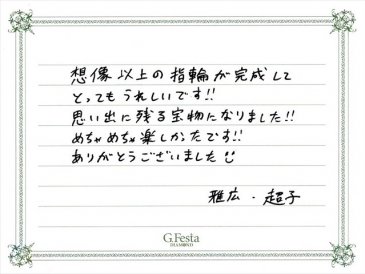 想像以上の指輪が完成して
とってもうれしいです!!
思い出に残る宝物になりました!!
めちゃめちゃ楽しかったです!!
ありがとうございました
雅広・超子
G.Festa
DIAMOND